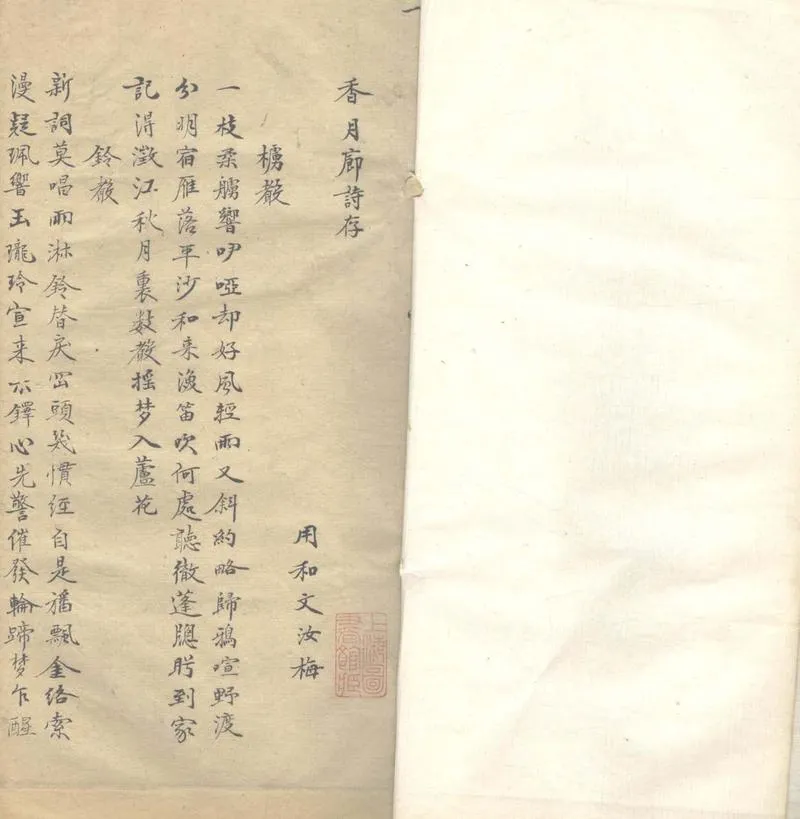 香月廊詩存
用和文汝梅
櫓聲
一枝柔艣響咿啞却好風輕雨又斜約略歸鴉喧野渡
分明宿雁落平沙和來漁笛吹何處聽徹蓬牕盻到家
記得澂江秋月裏數聲摇梦入蘆花
鈴聲
新詞莫唱雨淋鈴替戾岡頭幾慣经自是旛飄金络索
漫疑珮響玉瓏玲宣来木鐸心先警催發輪蹄梦乍醒
上海圖書館藏